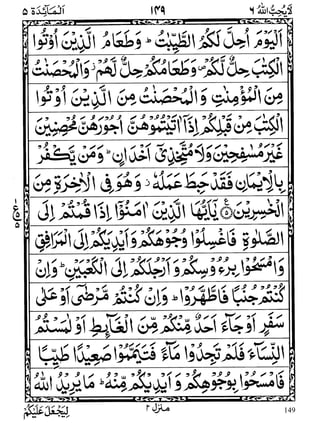 لَا يُحِبُّ اللهُ ٦ ١٤٩ اَلْمَآئِدَة ٥
اَلْيَوْمَ اُحِلَّ لَكُمُ الطَّيِّبٰتُ ؕ وَطَعَامُ الَّذِيْنَ اُوْتُوا
الْكِتٰبَ حِلٌّ لَّكُمْ ۪ وَطَعَامُكُمْ حِلٌّ لَّهُمْ ؗ وَالْمُحْصَنٰتُ
مِنَ الْمُؤْمِنٰتِ وَالْمُحْصَنٰتُ مِنَ الَّذِيْنَ اُوْتُوا
الْكِتٰبَ مِنْ قَبْلِكُمْ اِذَاۤ اٰتَيْتُمُوْهُنَّ اُجُوْرَهُنَّ مُحْصِنِيْنَ
غَيْرَ مُسٰفِحِيْنَ وَلَا مُتَّخِذِيْۤ اَخْدَانٍ ؕ وَمَنْ يَّكْفُرْ
بِالْاِيْمَانِ فَقَدْ حَبِطَ عَمَلُهٗ ؗ وَهُوَ فِي الْاٰخِرَةِ مِنَ
الْخٰسِرِيْنَ ۝٥ يٰۤاَيُّهَا الَّذِيْنَ اٰمَنُوْۤا اِذَا قُمْتُمْ اِلَى
الصَّلٰوةِ فَاغْسِلُوْا وُجُوْهَكُمْ وَاَيْدِيَكُمْ اِلَى الْمَرَافِقِ
وَامْسَحُوْا بِرُءُوْسِكُمْ وَاَرْجُلَكُمْ اِلَى الْكَعْبَيْنِ ؕ وَاِنْ
كُنْتُمْ جُنُبًا فَاطَّهَّرُوْا ؕ وَاِنْ كُنْتُمْ مَّرْضٰۤى اَوْ عَلٰى
سَفَرٍ اَوْ جَآءَ اَحَدٌ مِّنْكُمْ مِّنَ الْغَآئِطِ اَوْ لٰمَسْتُمُ
النِّسَآءَ فَلَمْ تَجِدُوْا مَآءً فَتَيَمَّمُوْا صَعِيْدًا طَيِّبًا
فَامْسَحُوْا بِوُجُوْهِكُمْ وَاَيْدِيْكُمْ مِّنْهُ ؕ مَا يُرِيْدُ اللهُ
لِيَجْعَلَ عَلَيْكُمْ منزل ٢ 149